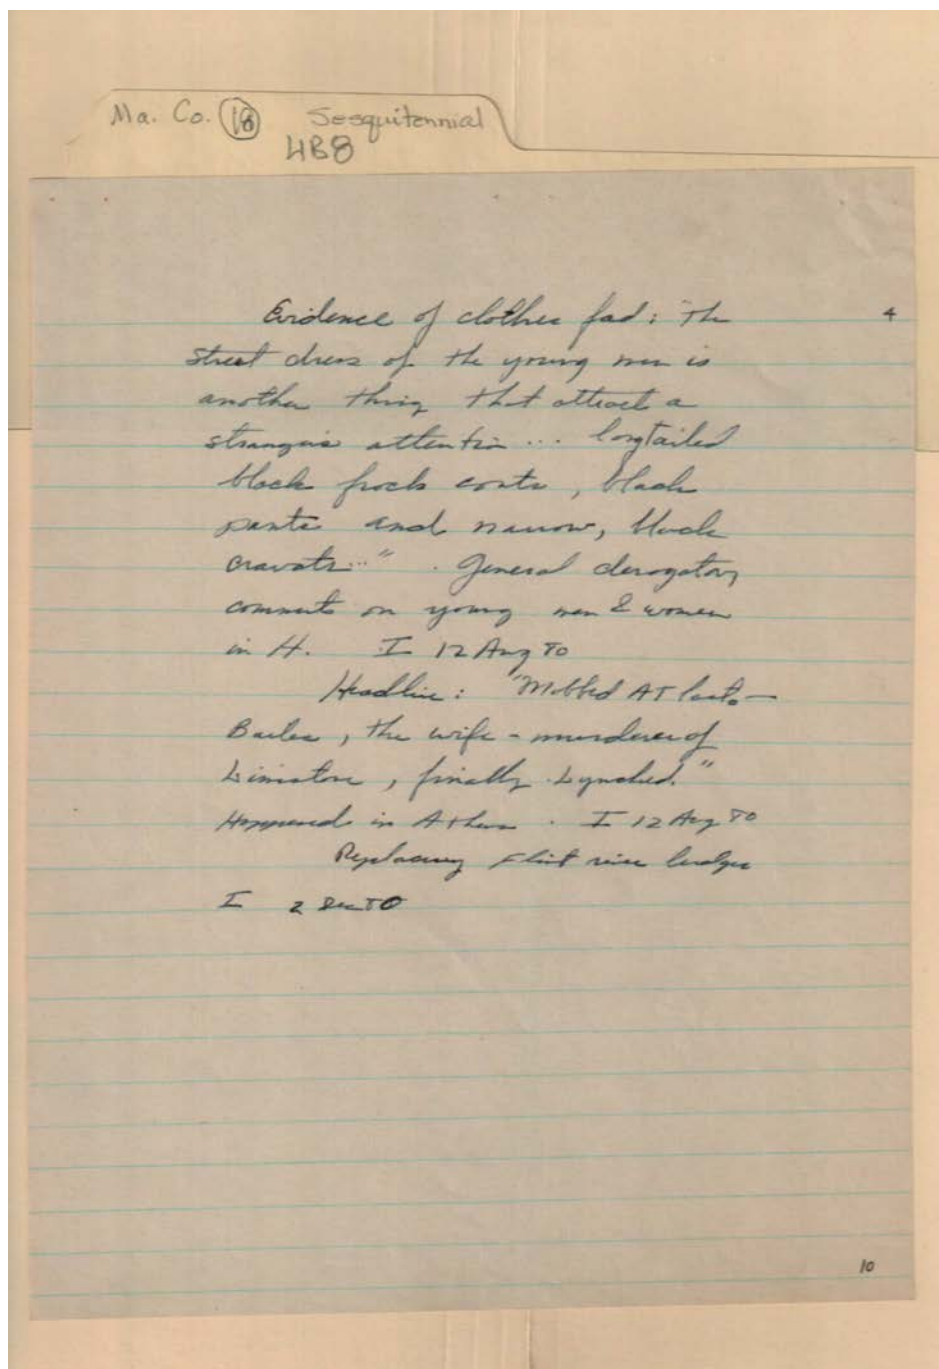 Ma. Co. 18 Sesquitennial
4B8
4
Evidence of clothes fad: "The
street dress of the young men is
another thing that attract a
stranger's attention ... longtailed
black frock coats, black
pants and narrow, black
cravats..." . General derogatory
comments on young men & women
in H. I 12 Aug 80
Headline: "Mobbed AT Last.—
, the wife-murderer of
, finally Lynched."
Happened in Athens. I 12 Aug 80
Replacing Flint river bridges
I 2 Dec 80
10